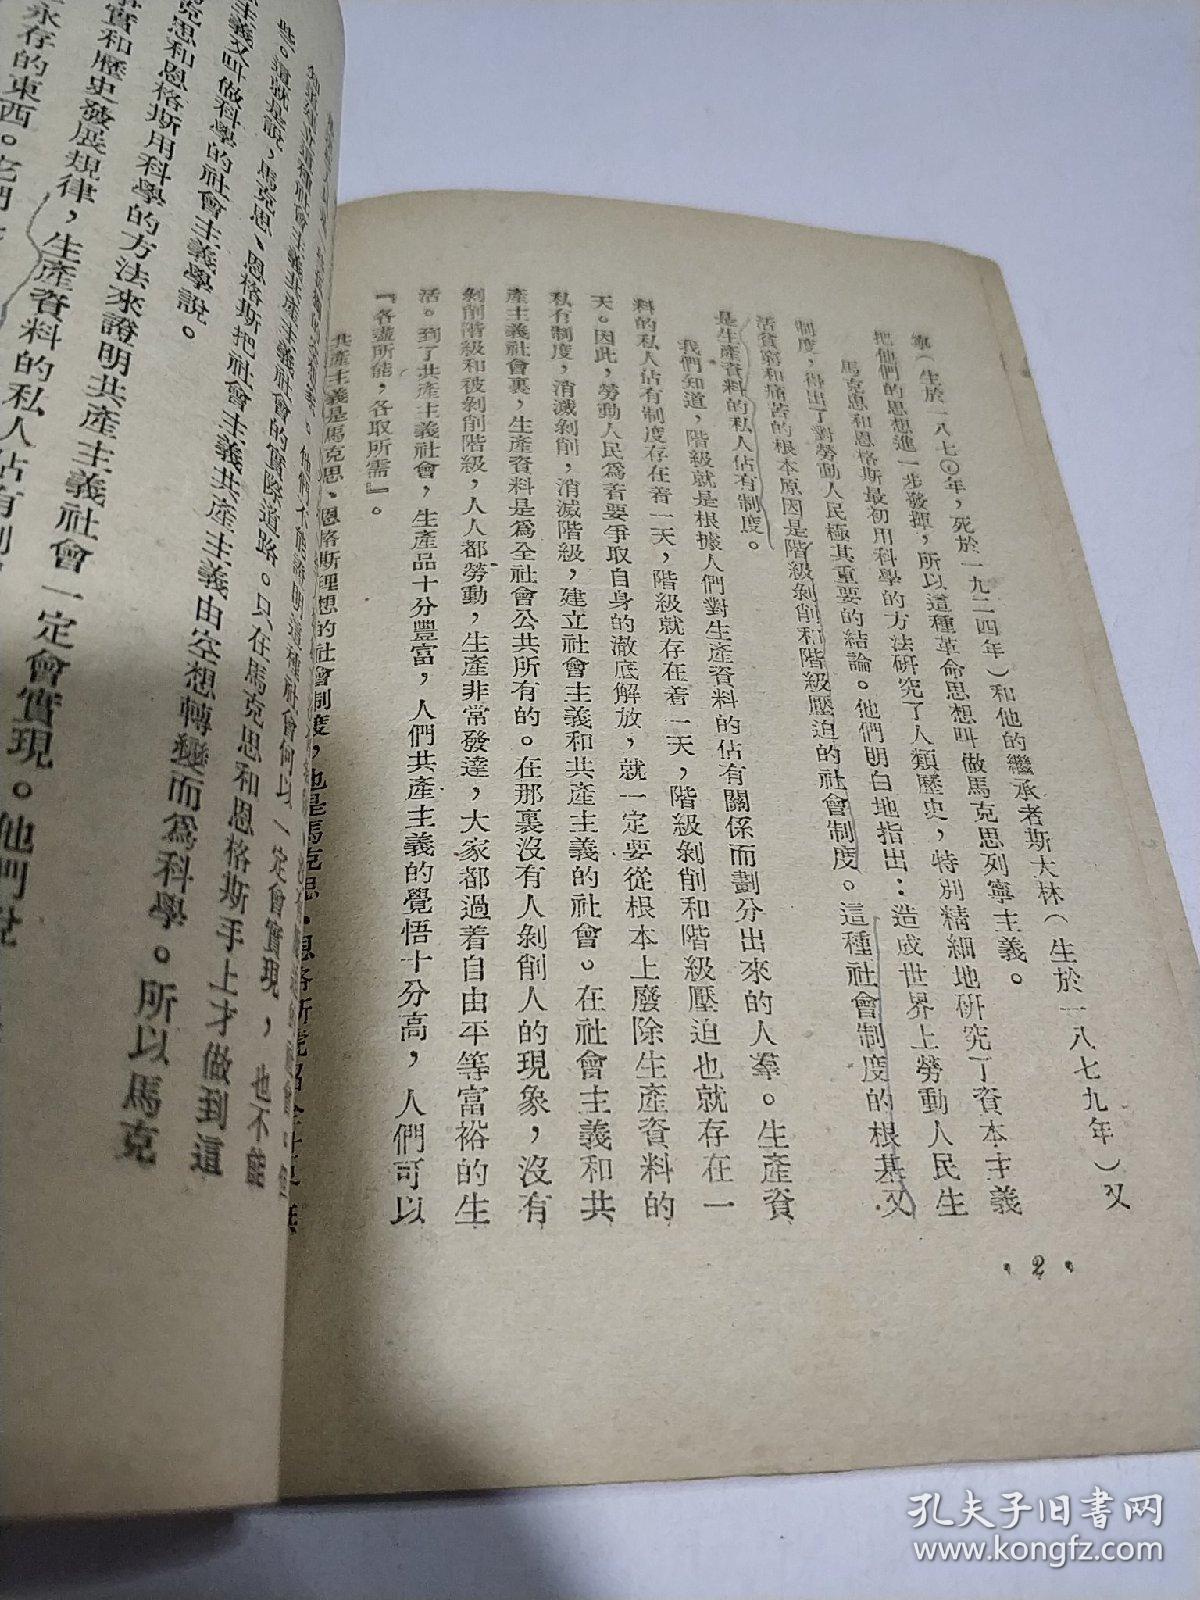 寧（生於一八七〇年，死於一九二四年）和他的繼承者斯大林（生於一八七九年）又
把他們的思想進一步發揮，所以這種革命思想叫做馬克思列寧主義。
馬克思和恩格斯最初用科學的方法研究了人類歷史，特別精細地研究了資本主義
制度，得出了對勞動人民極其重要的結論。他們明白地指出：造成世界上勞動人民生
活貧窮和痛苦的根本原因是階級剝削和階級壓迫的社會制度。這種社會制度的根基又
是生產資料的私人佔有制度。
我們知道，階級就是根據人們對生產資料的佔有關係而劃分出來的人羣。生產資
料的私人佔有制度存在着一天，階級就存在着一天，階級剝削和階級壓迫也就存在一
天。因此，勞動人民爲着要爭取自身的澈底解放，就一定要從根本上廢除生產資料的
私有制度，消滅剝削，消滅階級，建立社會主義和共產主義的社會。在社會主義和共
產主義社會裏，生產資料是爲全社會公共所有的。在那裏沒有人剝削人的現象，沒有
剝削階級和被剝削階級，人人都勞動，生產非常發達，大家都過着自由平等富裕的生
活。到了共產主義社會，生產品十分豐富，人們共產主義的覺悟十分高，人們可以
『各盡所能，各取所需』。
共產主義是馬克思、恩格斯理想的社會制度，也是馬克思、恩格斯號召
·2·
這種社會主義共產主義社會的實際道路。只在馬克思和恩格斯手上才做到這
些。這就是說，馬克思、恩格斯把社會主義共產主義由空想轉變而爲科學。所以馬克
主義又叫做科學的社會主義學說。
克思和恩格斯用科學的方法來證明共產主義社會一定會實現。他們說
事實和歷史發展規律，生產資料的私人佔有制
永存的東西。它們
孔夫子旧书网
www.kongfz.com